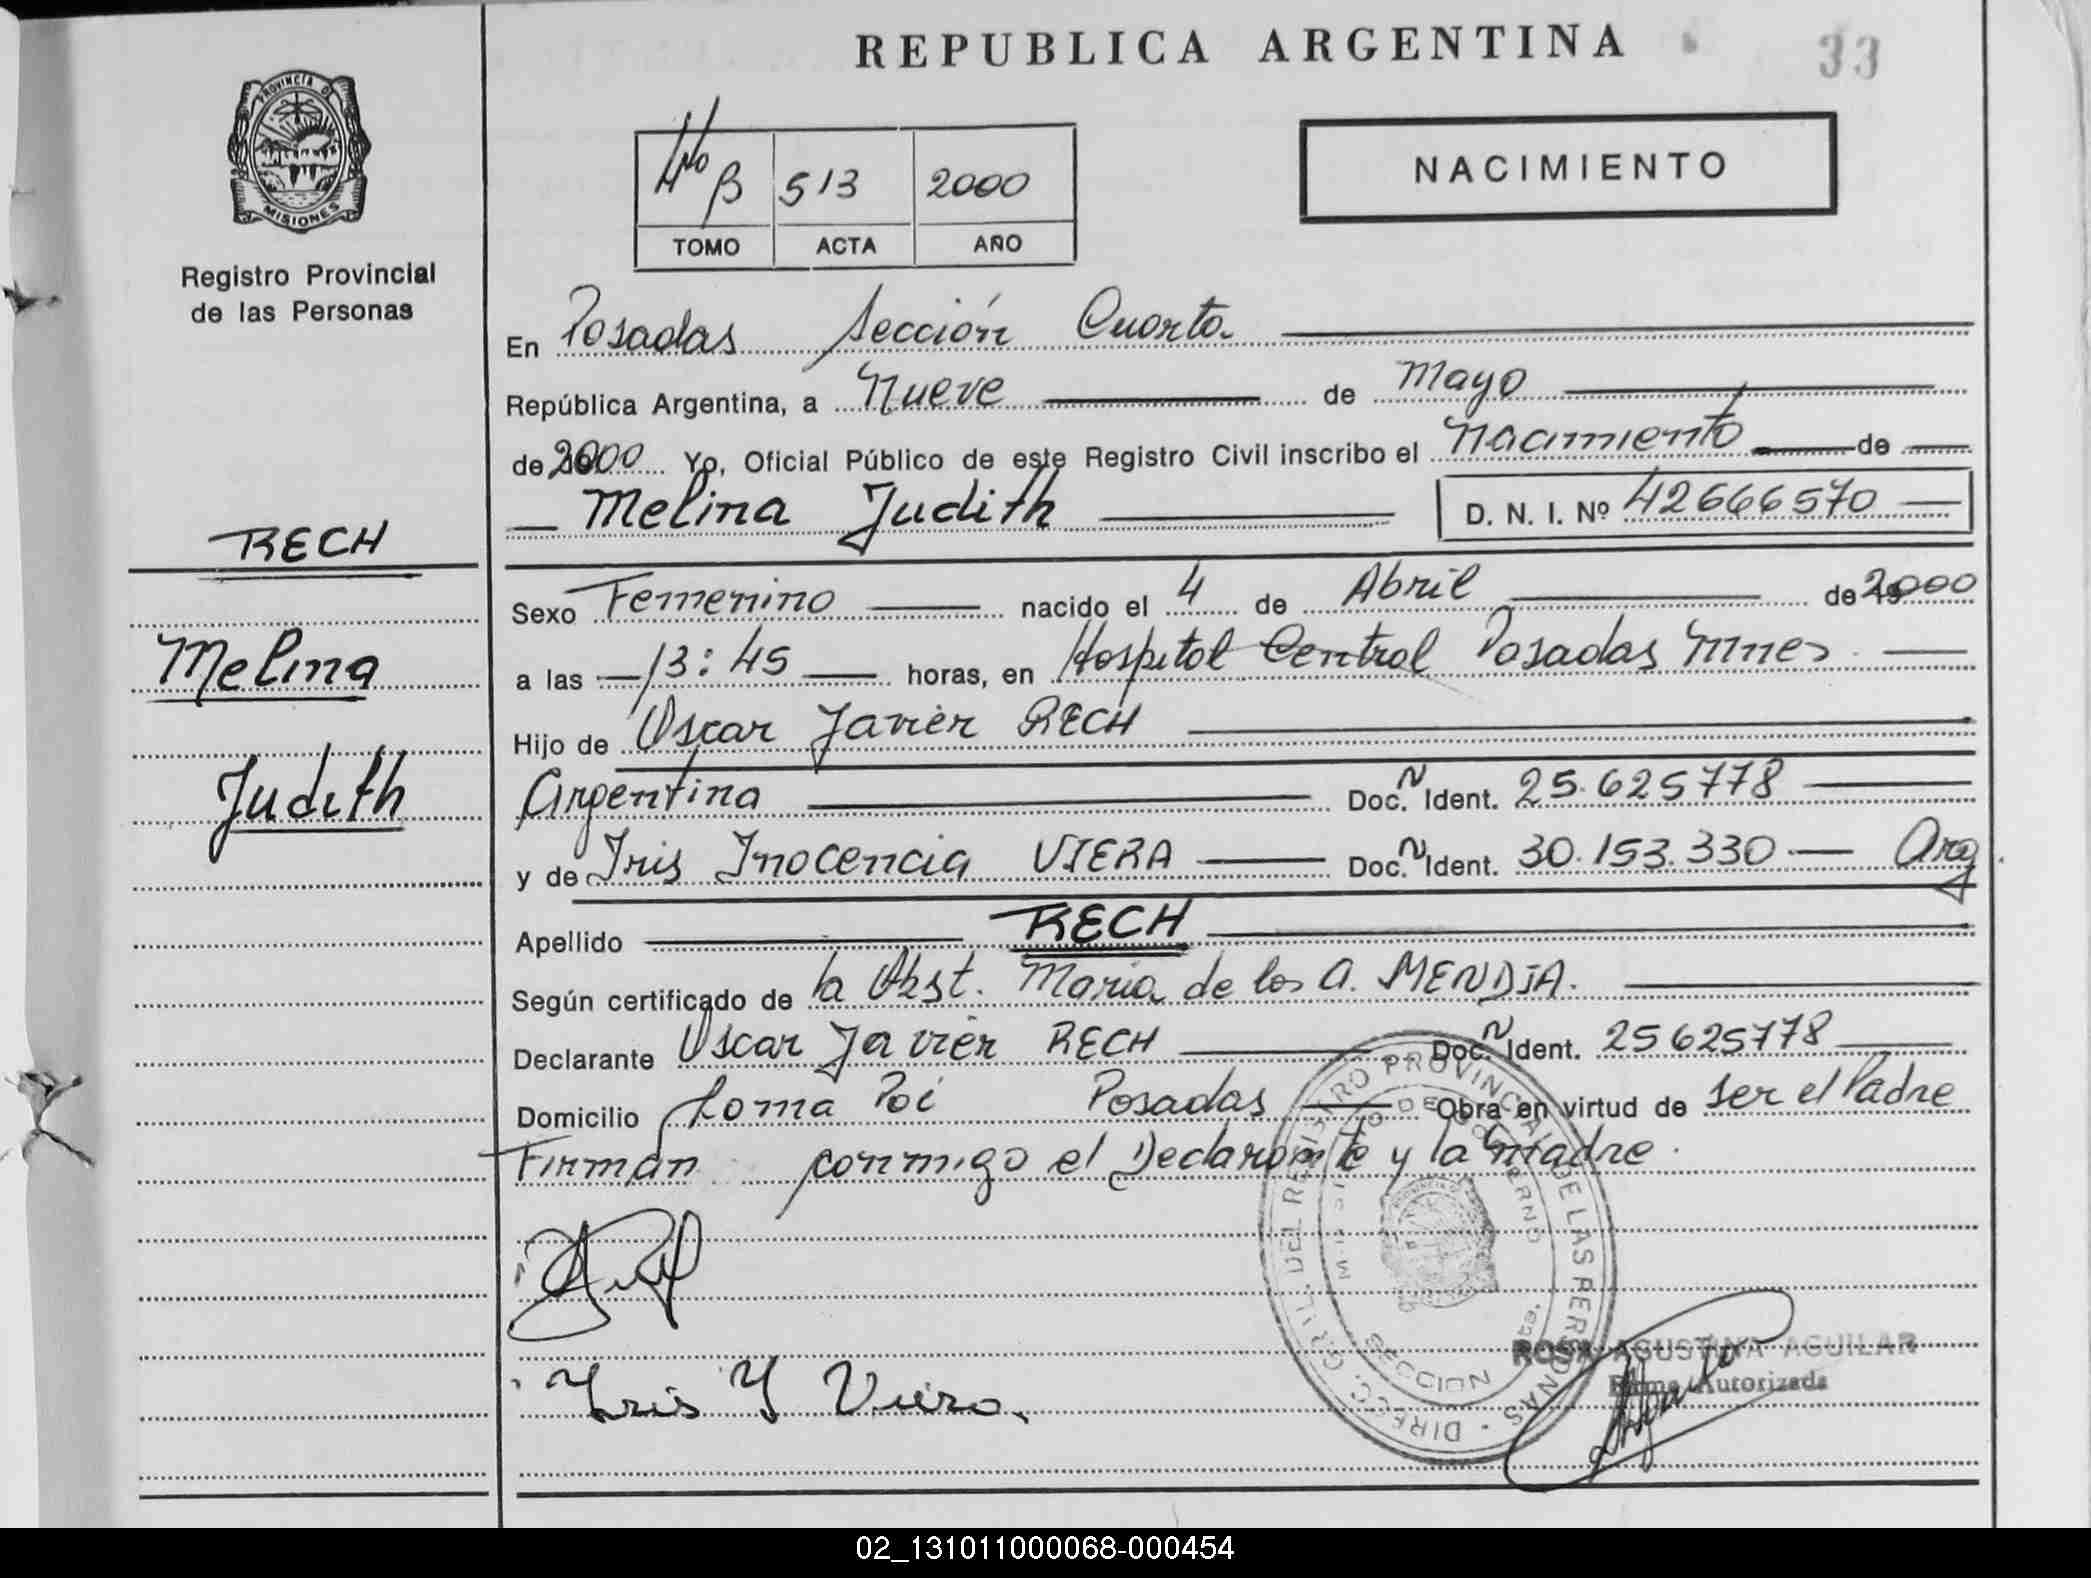 REPUBLICA ARGENTINA
33
PROVINCIA DE
MISIONES
Registro Provincial
de las Personas
4to B 513 2000
TOMO ACTA AÑO
NACIMIENTO
En Posadas Sección Cuarta
República Argentina, a Nueve de Mayo
de 2000 Yo, Oficial Público de este Registro Civil inscribo el Nacimiento de
Melina Judith D. N. I. Nº 42666570
RECH
Melina
Judith
Sexo Femenino nacido el 4 de Abril de 2000
a las 13:45 horas, en Hospital Central Posadas Mnes
Hijo de Oscar Javier RECH
Argentina Doc. N Ident. 25.625778
y de Iris Inocencia VIERA Doc. N Ident. 30.153.330 Arg
Apellido RECH
Según certificado de la Obst. Maria de los A. MENDIA.
Declarante Oscar Javier RECH Doc. N Ident. 25625778
Domicilio Loma Poi Posadas Obra en virtud de ser el Padre
Firman conmigo el Declarante y la Madre.
DIRECC. GRAL. DEL REGISTRO PROVINCIAL DE LAS PERSONAS
SECCION
Iris Y Viera.
ROSA AGUSTINA AGUILAR
Firma Autorizada
02_131011000068-000454